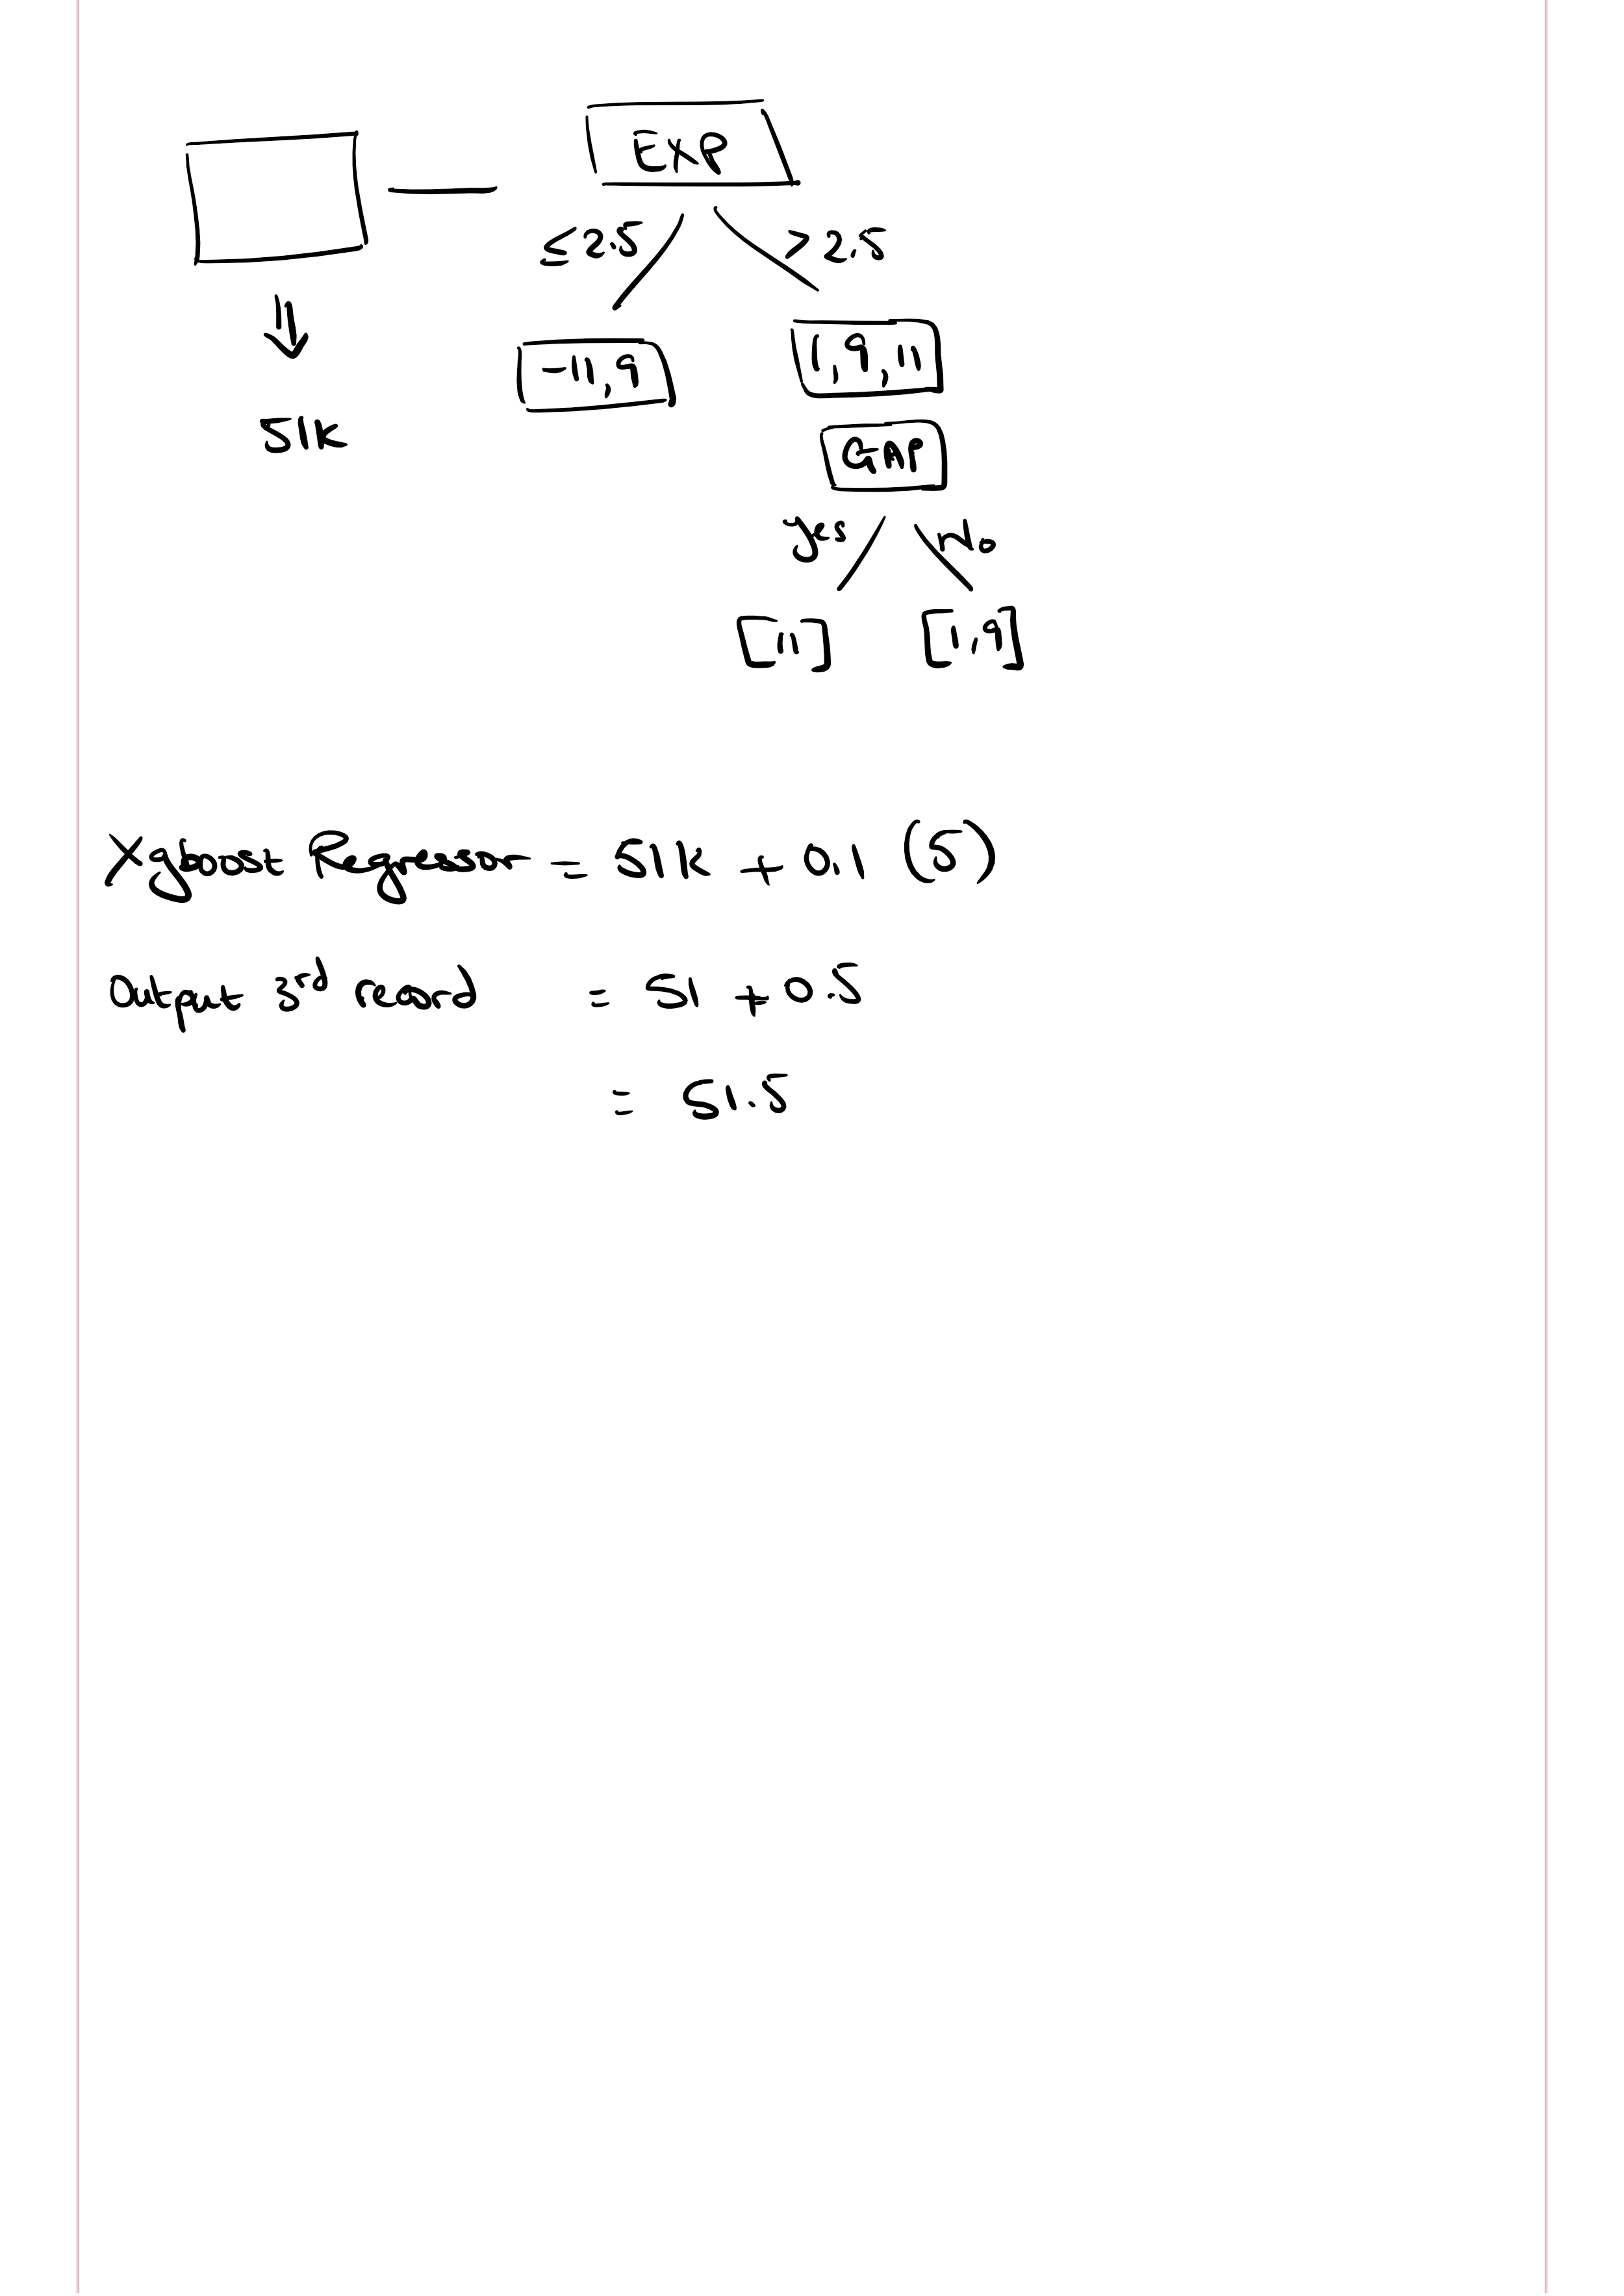 EXP
≤2.5 >2.5
-11,9 1,9,11
51k GAP
yes No
[11] [1,9]
Xgboost Regressor = 51k + 0.1 (5)
Output 3rd record = 51 + 0.5
= 51.5